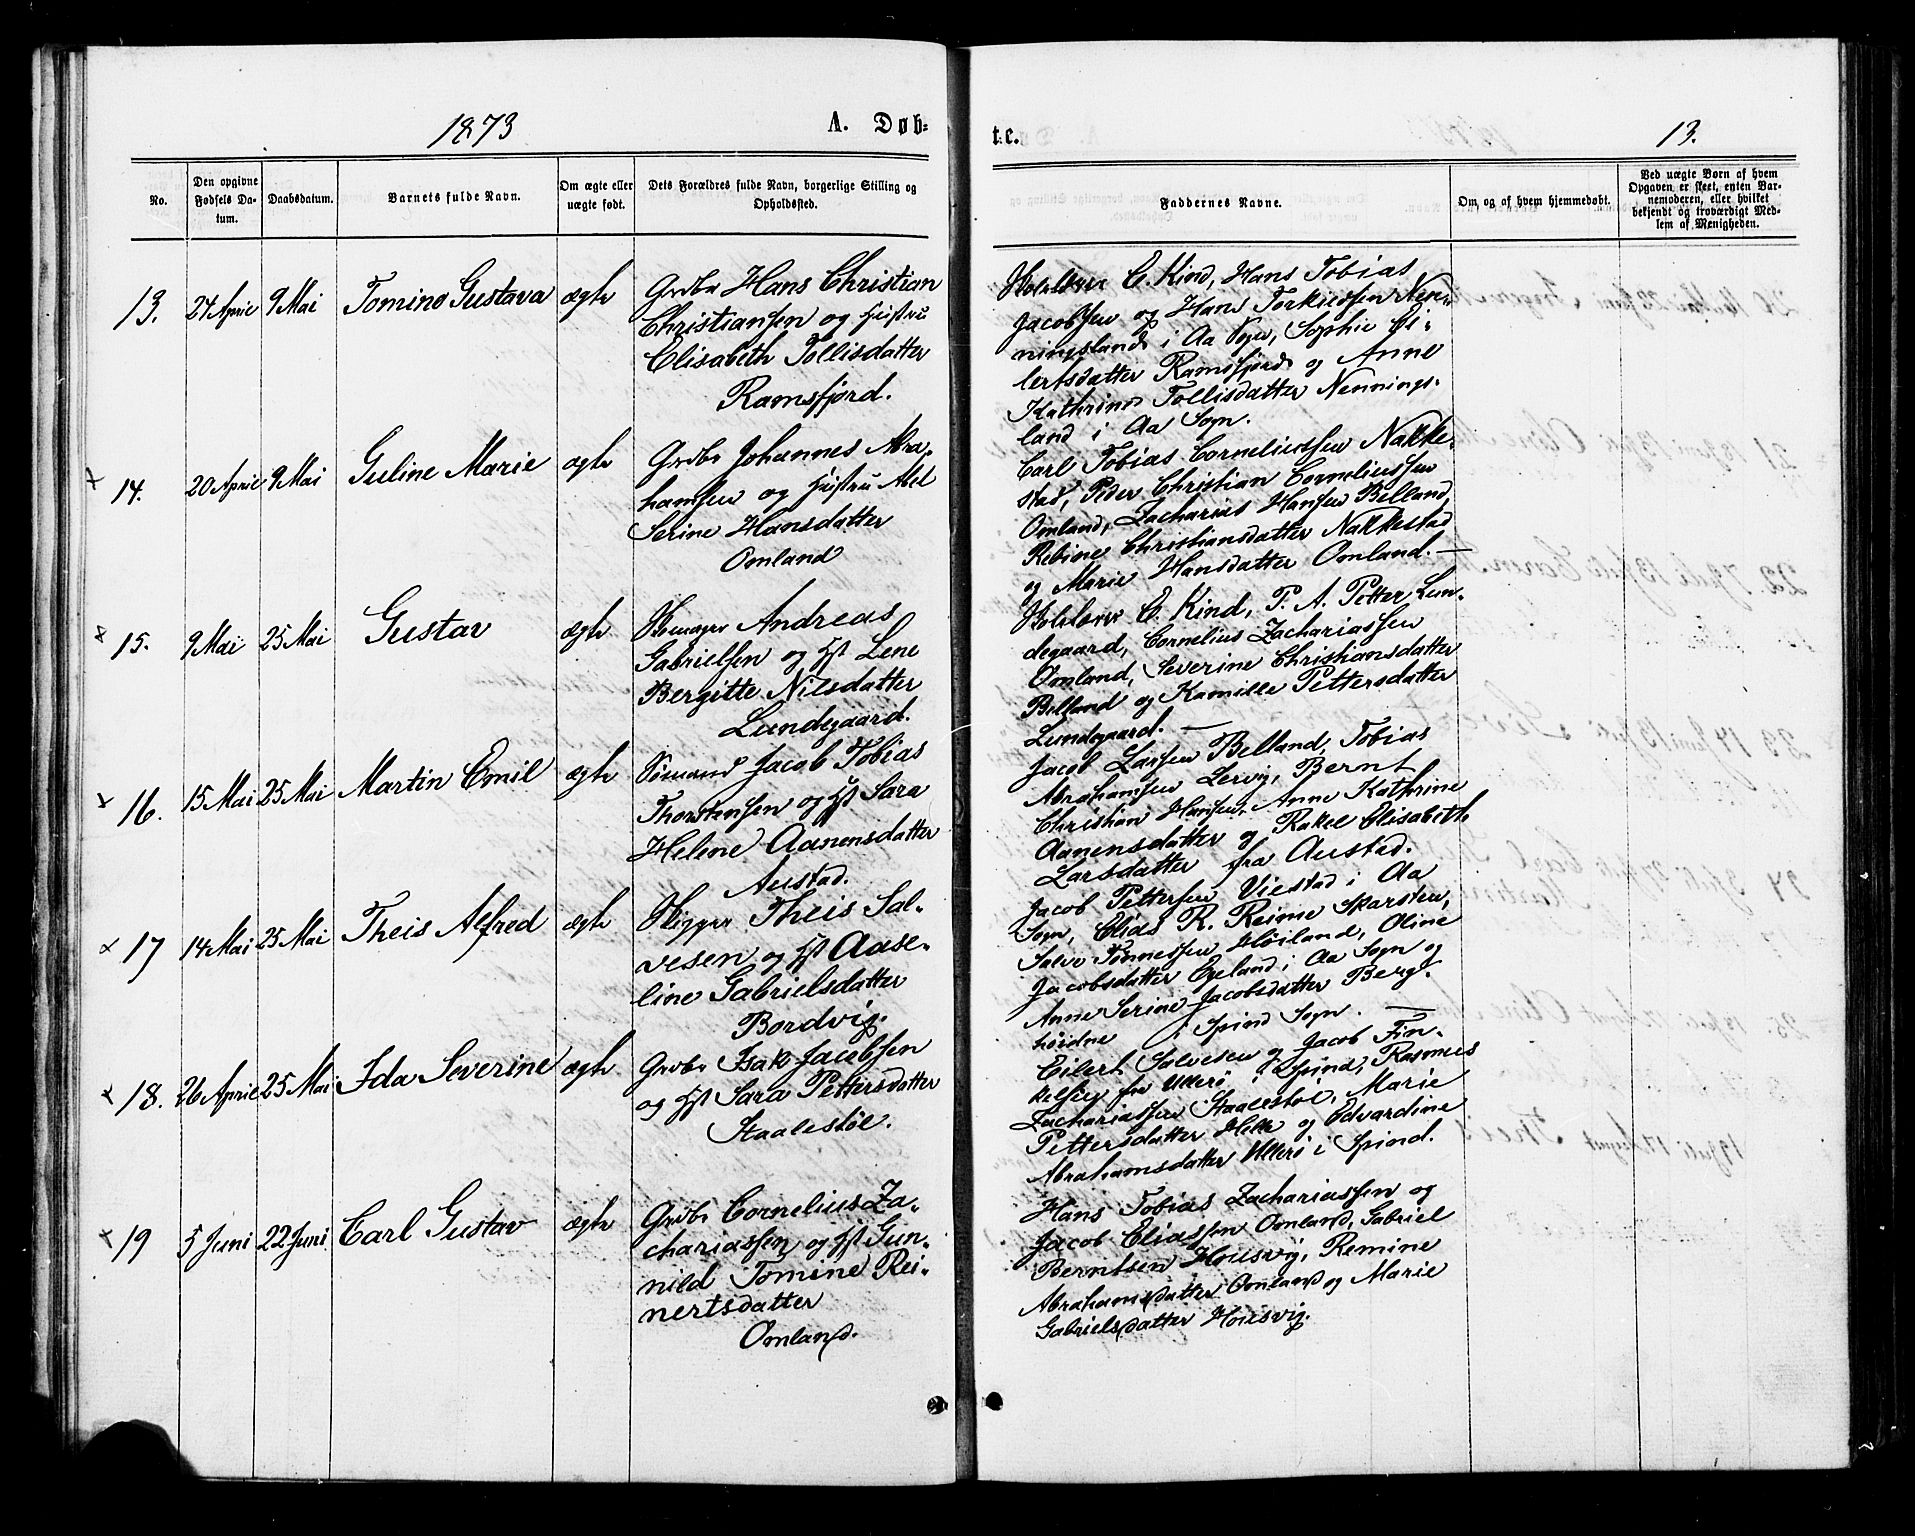 1873
A. Døb-
No.
Den opgivne Fødsels Da-
tum.
Daabsdatum.
Barnets fulde Navn.
Om ægte eller
uægte født.
Dets Forældres fulde Navn, borgerlige Stilling og
Opholdssted.
13. 24 April 9 Mai Tomine Gustava ægte
Grdbr Hans Christian
Christiansen og Hustru
Elisabeth Tollisdatter
Ramsfjord.
14. 20 April 9 Mai Guline Marie ægte
Grdbr Johannes Abra-
hamsen og Hustru Abel
Serine Hansdatter
Omland
15. 9 Mai 25 Mai Gustav ægte
Andreas
Gabrielsen og Hst Lene
Bergitte Nilsdatter
Lundegaard.
16. 15 Mai 25 Mai Martin Emil ægte
Sømand Jacob Tobias
Thorstensen og Hst Sara
Helene Aanensdatter
Austad.
17 14 Mai 25 Mai Theis Alfred ægte
Theis Sal-
vesen og Hst Aase-
line Gabrielsdatter
Bordvig.
18. 26 April 25 Mai Ida Severine ægte
Grdbr Isak Jacobsen
og Hst Sara Pettersdatter
Staalestøl.
19 5 Juni 22 Juni Carl Gustav ægte
Grdbr Cornelius Za-
chariassen og Hst Gun-
nild Tomine Rei-
nertsdatter
Omland.
te.
13.
Faddernes Navne.
Om og af hvem hjemmedøbt.
Ved uægte Børn af hvem
Opgaven er skeet, enten Bar-
nemoderen, eller hvilket
bekjendt og troværdigt Med-
lem af Menigheden.
E. Kind, Hans Tobias
Jacobsen og Hans Torkildsen Nen-
ningsland i Aa Sogn, Sophie Ei-
lertsdatter Ramsfjord og Anne
Kathrine Tollisdatter Nennings-
land i Aa Sogn.
Carl Tobias Corneliussen Nakke-
stad, Peder Christian Corneliussen
Omland, Zacharias Hansen Belland,
Rebine Christiansdatter Nakkestad
og Marie Hansdatter Omland. —
E. Kind, P. A. Petter Lun-
degaard, Cornelius Zachariassen
Omland, Severine Christiansdatter
Belland og Kamille Pettersdatter
Lundegaard. —
Jacob Larsen Belland, Tobias
Abrahamsen Lervig, Bernt
Christian Hansen, Anne Kathrine
Aanensdatter og Rakel Elisabeth
Larsdatter fra Austad.
Jacob Pettersen Viestad i Aa
Sogn, Elias R. Reime Skarsten,
Salve Tønnessen Høiland, Oline
Jacobsdatter Egeland i Aa Sogn og
Anne Serine Jacobsdatter Berg-
høidne i Spind Sogn. —
Eilert Salvesen og Jacob Fin-
kelsen fra Ullerø i Spind, Rasmus
Zachariassen Staalestøl, Marie
Pettersdatter Helle og Edvardine
Abrahamsdatter Ullerø i Spind.
Hans Tobias Zachariassen og
Jacob Eliassen Omland, Gabriel
Berntsen Housvig, Remine
Abrahamsdatter Omland og Marie
Gabrielsdatter Housvig.